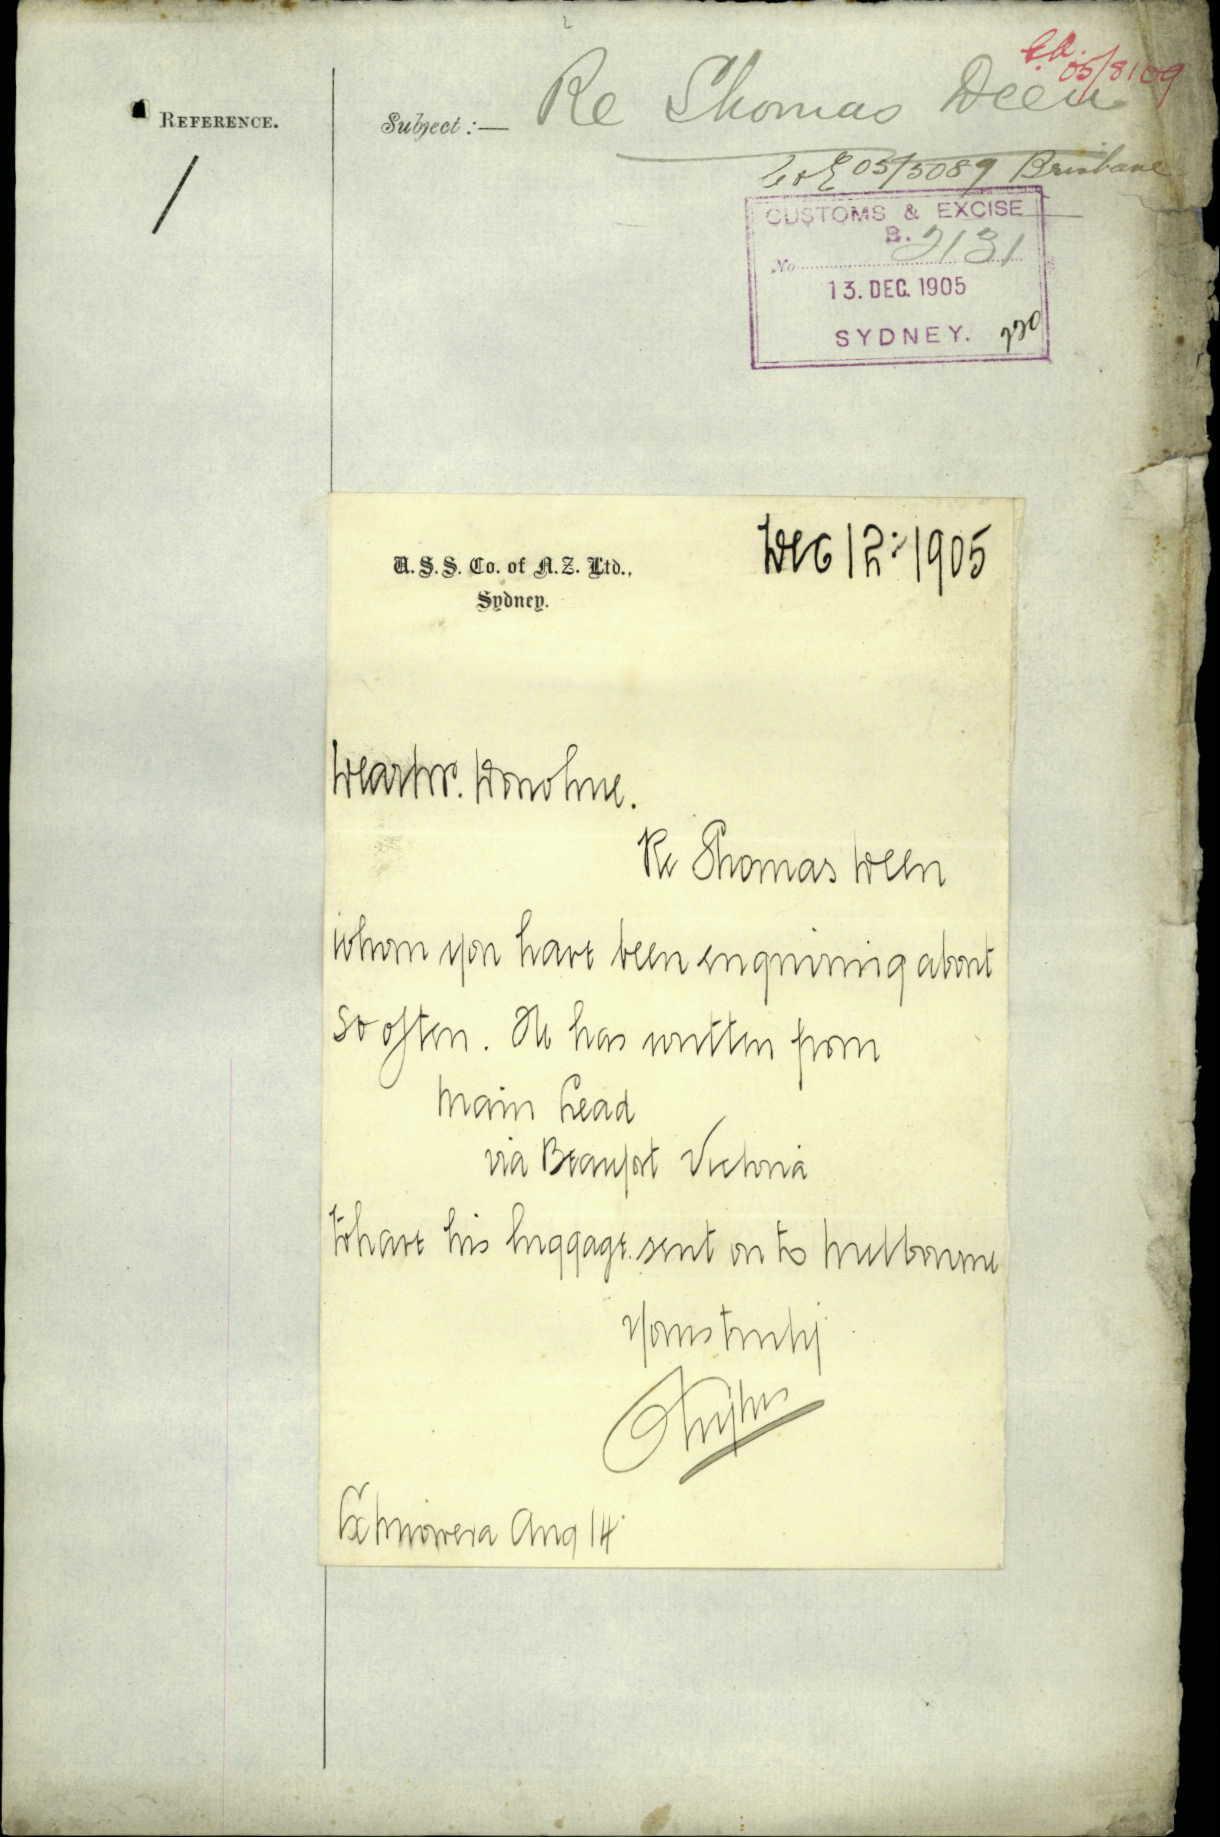 05/8109
REFERENCE.
Subject :— Re Thomas Deen
C & E 05/5089 Brisbane
1
CUSTOMS & EXCISE
B.
No 2131
13. DEC. 1905
SYDNEY.
U. S. S. Co. of N. Z. Ltd.,
Sydney.
Dec 12: 1905
Dear Mr. Donohue.
Re Thomas Deen
whom you have been enquiring about
so often. He has written from
Main Lead
via Beaufort Victoria
to have his luggage sent on to Melbourne
Yours truly
Ex Miowera Aug 14